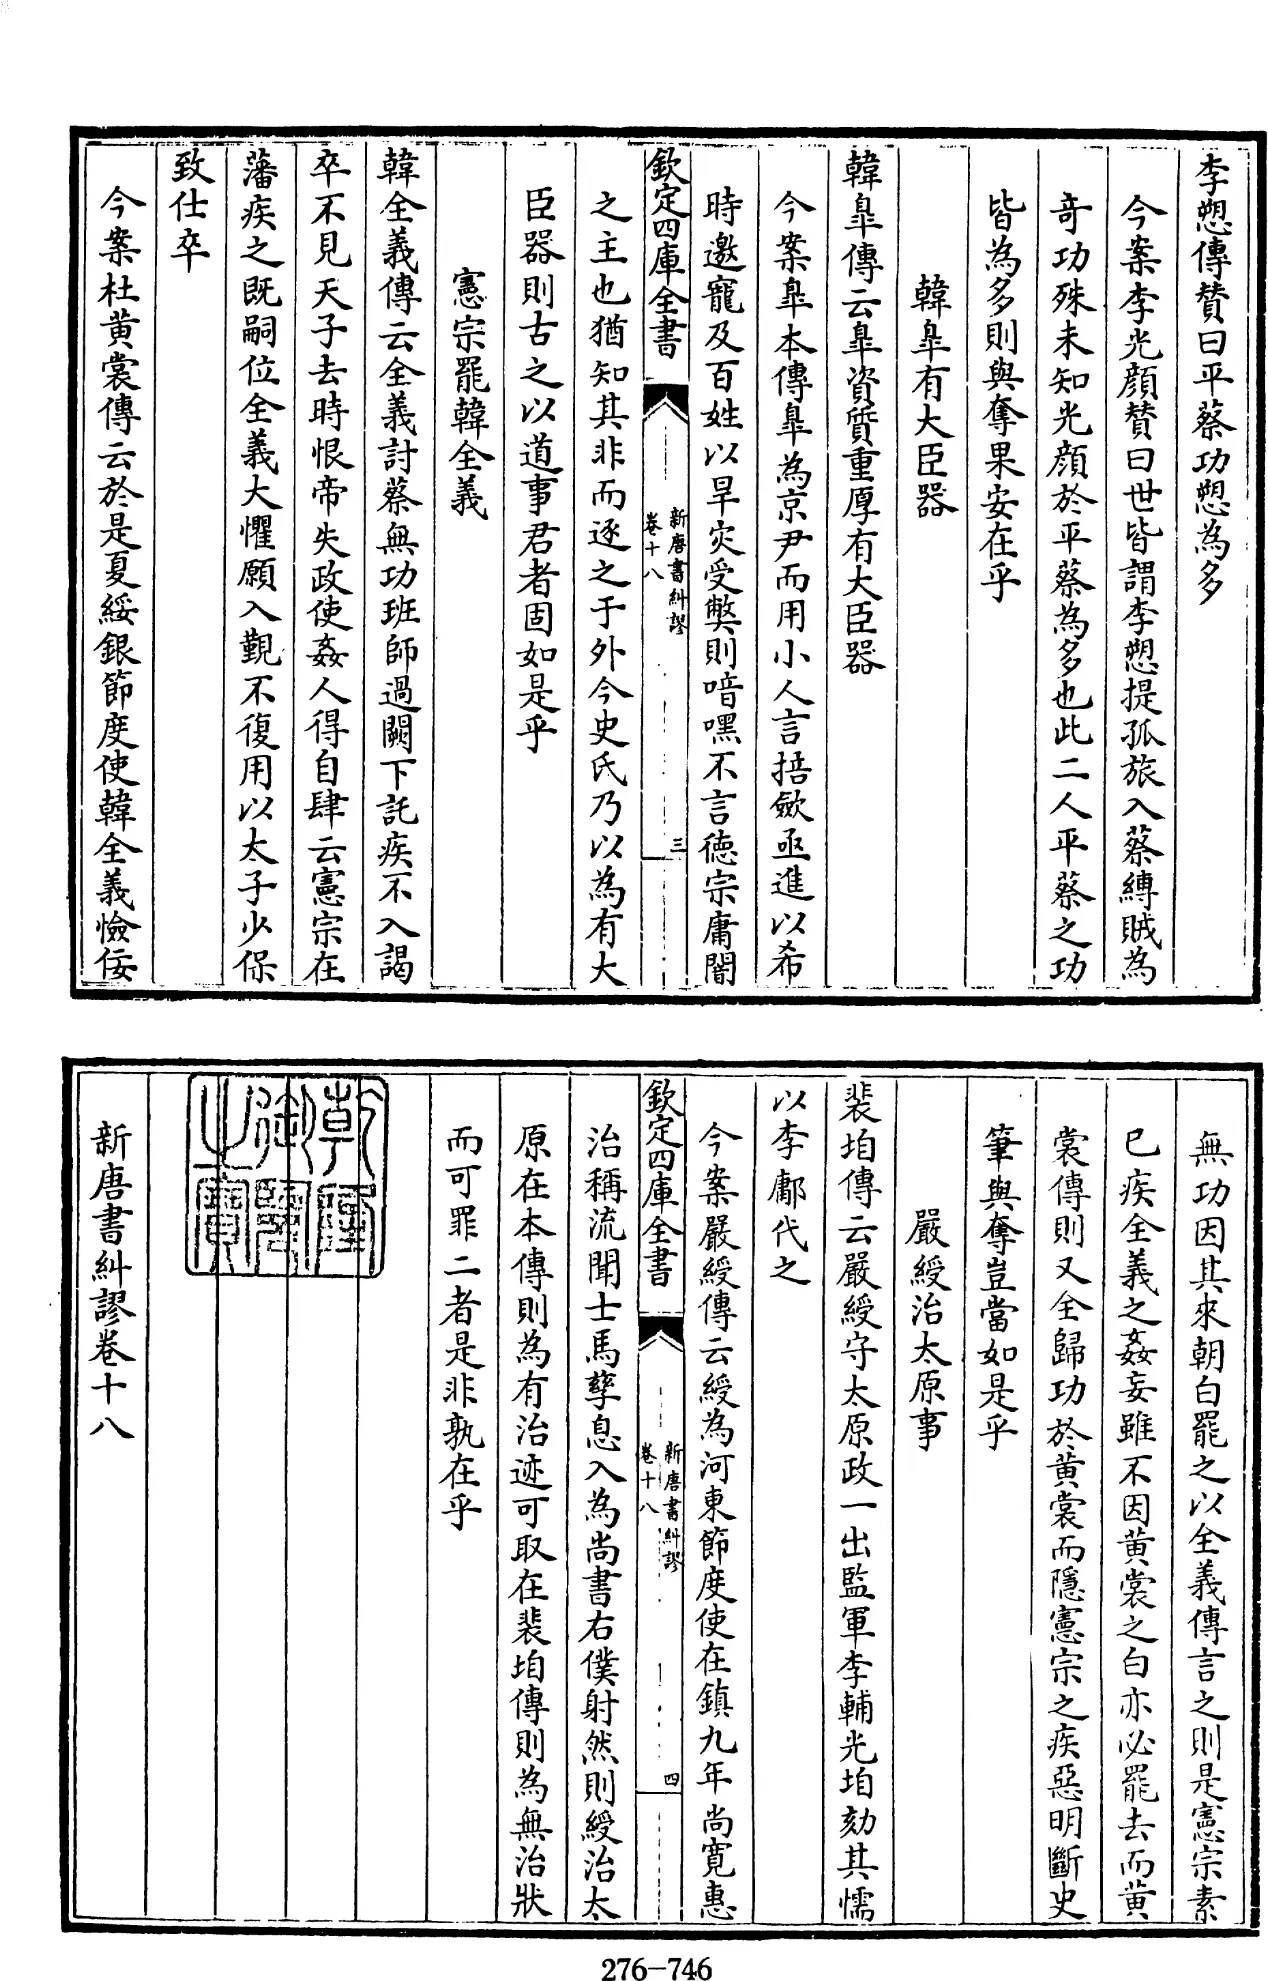 李愬傳贊曰平蔡功愬為多
今案李光顔贊曰世皆謂李愬提孤旅入蔡縛賊為
竒功殊未知光顔於平蔡為多也此二人平蔡之功
皆為多則與奪果安在乎
韓臯有大臣器
韓臯傳云臯資質重厚有大臣器
今案臯本傳臯為京尹而用小人言掊斂亟進以希
時邀寵及百姓以旱灾受弊則喑嘿不言徳宗庸闇
欽定四庫全書
新唐書糾謬
卷十八
三
之主也猶知其非而逐之于外今史氏乃以為有大
臣器則古之以道事君者固如是乎
憲宗罷韓全義
韓全義傳云全義討蔡無功班師過闕下託疾不入謁
卒不見天子去時恨帝失政使姦人得自肆云憲宗在
藩疾之既嗣位全義大懼願入覲不復用以太子少保
致仕卒
今案杜黄裳傳云於是夏綏銀節度使韓全義憸佞
無功因其來朝白罷之以全義傳言之則是憲宗素
已疾全義之姦妄雖不因黄裳之白亦必罷去而黄
裳傳則又全歸功於黄裳而隱憲宗之疾惡明斷史
筆與奪豈當如是乎
嚴綬治太原事
裴垍傳云嚴綬守太原政一出監軍李輔光垍劾其懦
以李鄘代之
今案嚴綬傳云綬為河東節度使在鎮九年尚寛惠
欽定四庫全書
新唐書糾謬
卷十八
四
治稱流聞士馬孳息入為尚書右僕射然則綬治太
原在本傳則為有治迹可取在裴垍傳則為無治狀
而可罪二者是非孰在乎
乾隆
御覽
之寳
新唐書糾謬卷十八
276-746